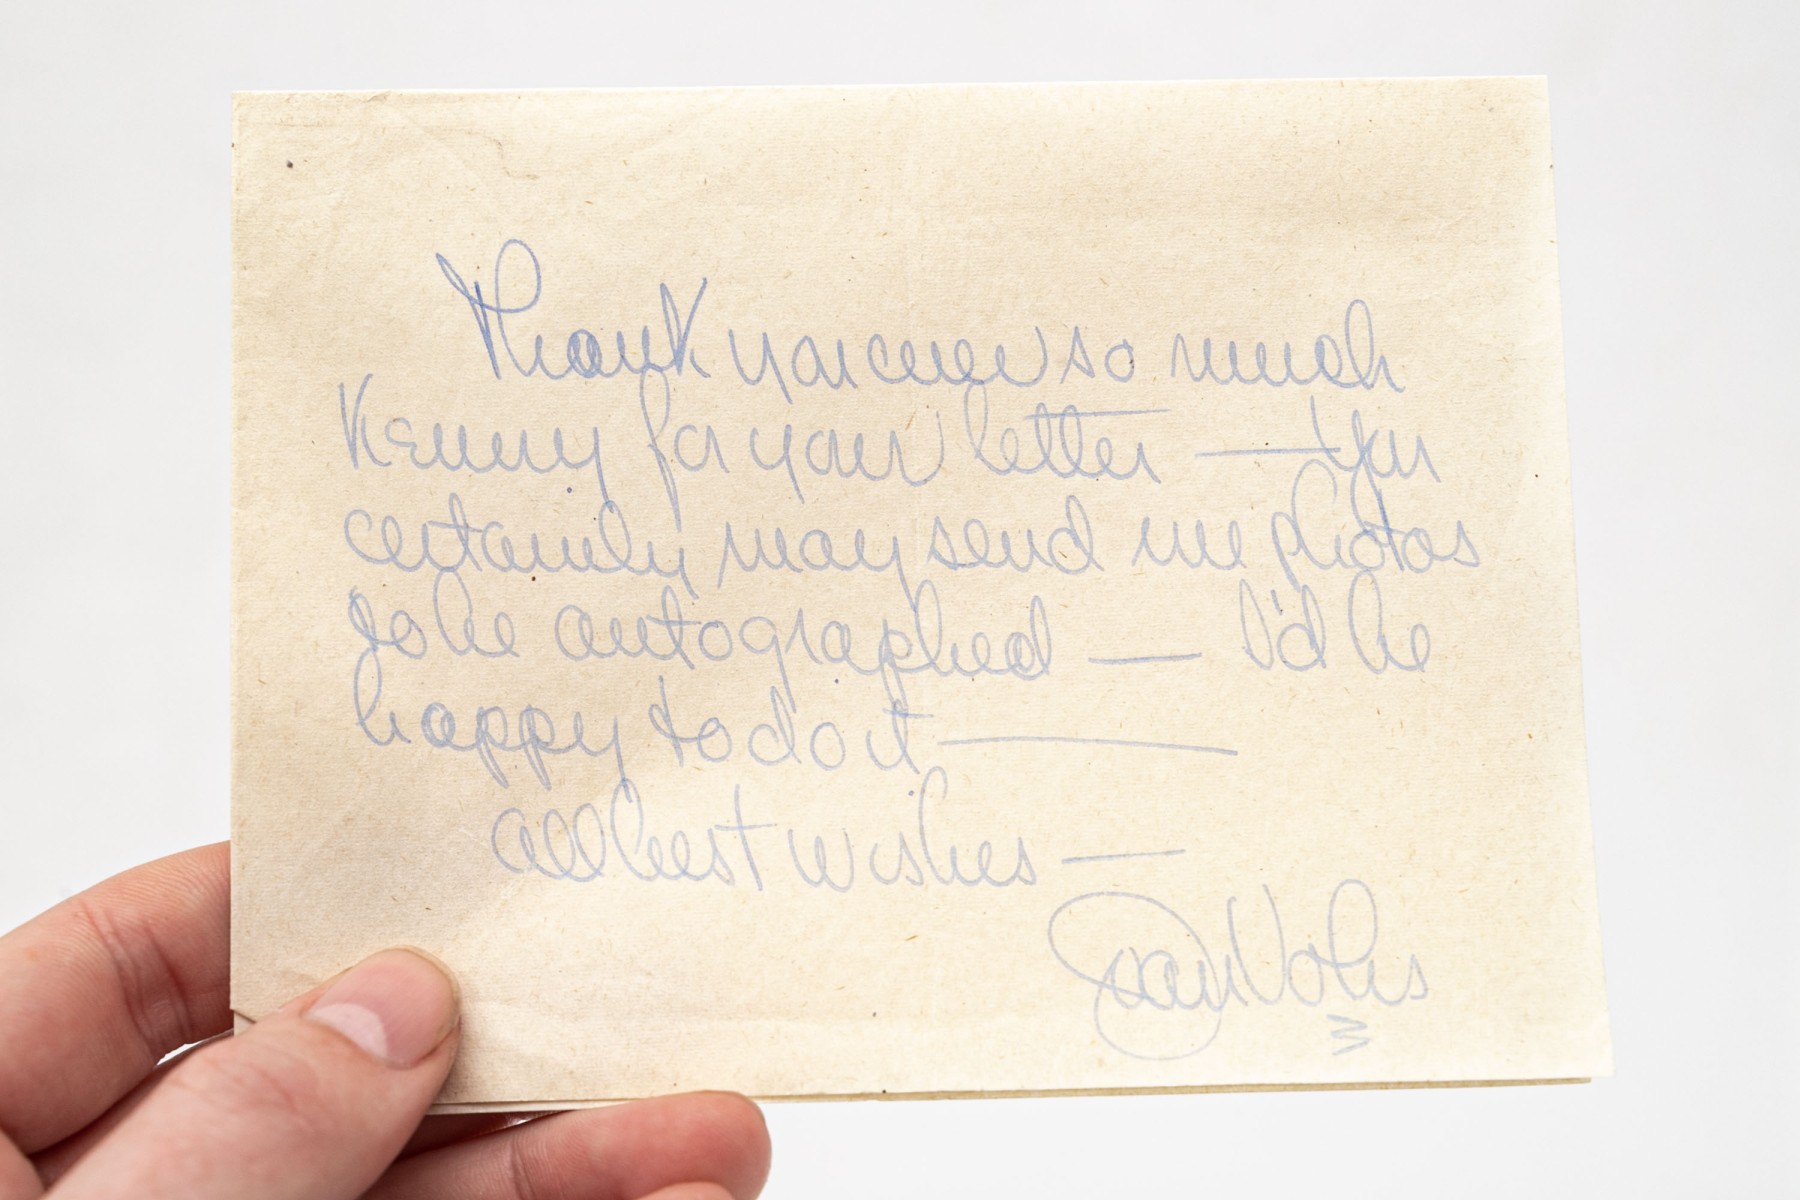 Thank you ever so much
Kenny for your letter — You
certainly may send me photos
to be autographed — I'd be
happy to do it —
all best wishes —
Joan Vohs